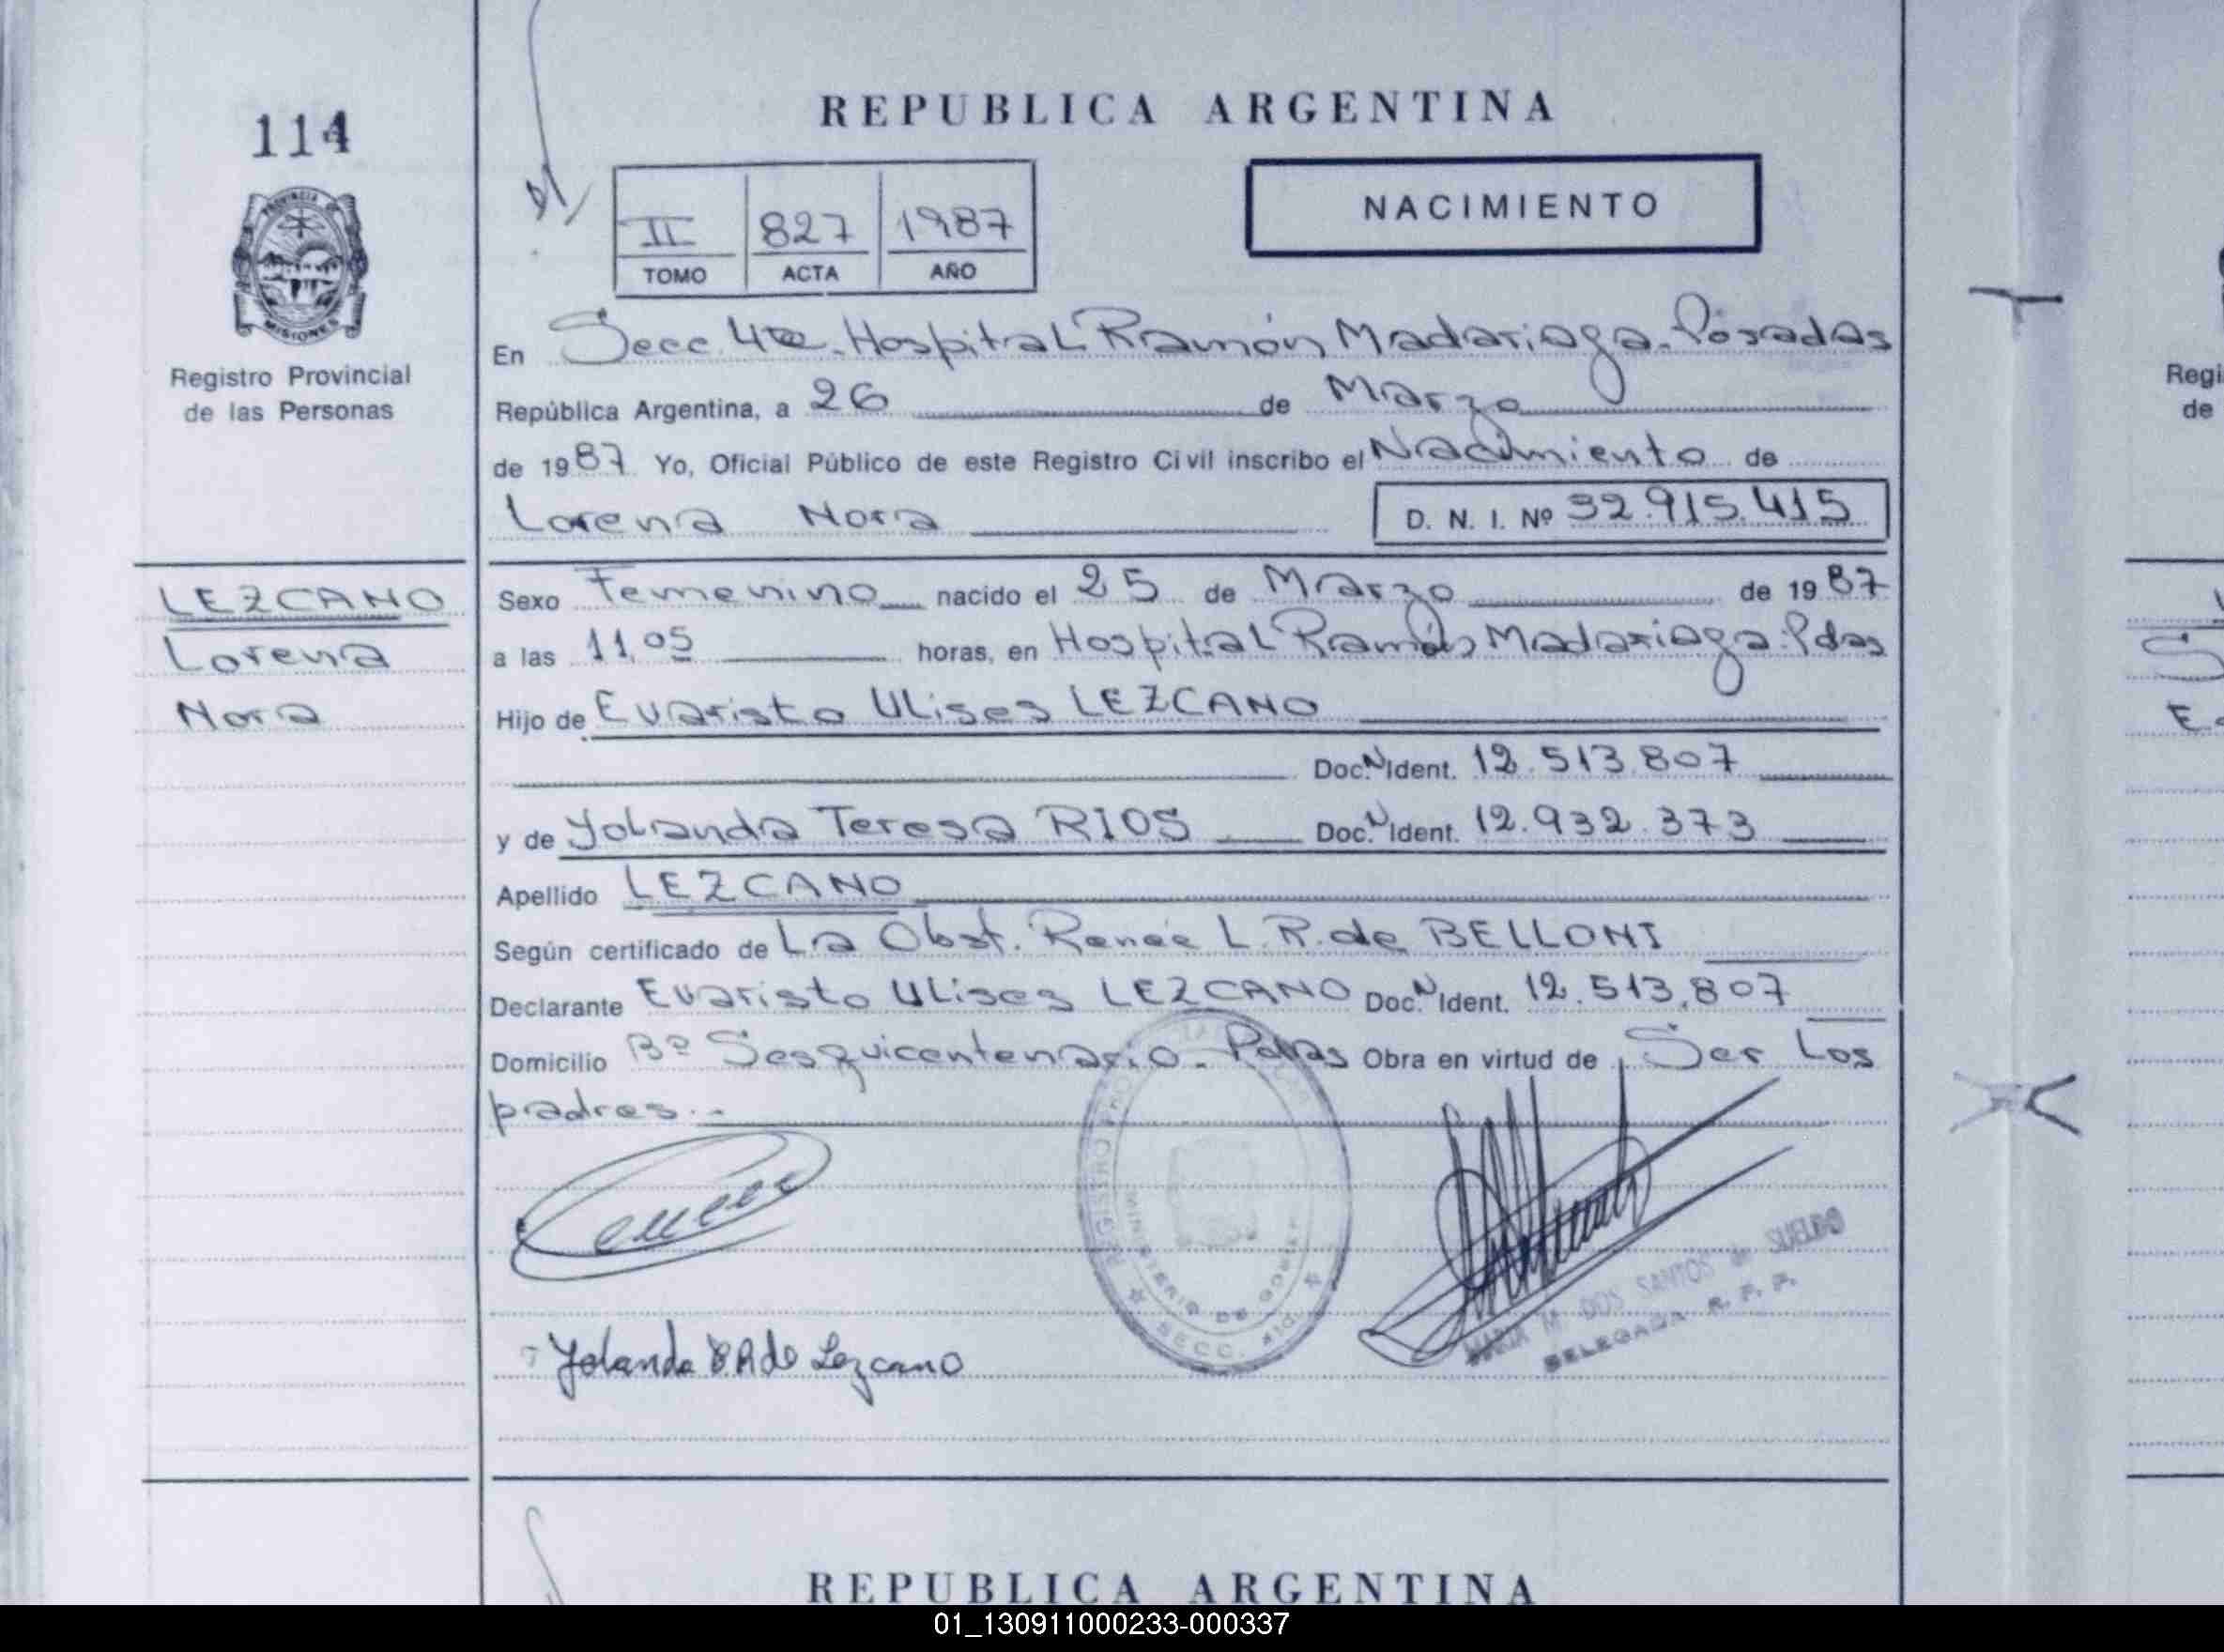 114
PROVINCIA DE
MISIONES
Registro Provincial
de las Personas
LEZCANO
Lorena
Nora
REPUBLICA ARGENTINA
II 827 1987
TOMO ACTA AÑO
NACIMIENTO
En Secc. 4ta. Hospital Ramón Madariaga. Posadas
República Argentina, a 26 de Marzo
de 1987 Yo, Oficial Público de este Registro Civil inscribo el Nacimiento de
Lorena Nora D. N. I. Nº 32.915.415
Sexo Femenino nacido el 25 de Marzo de 1987
a las 11,05 horas, en Hospital Ramón Madariaga. Pdas
Hijo de Evaristo Ulises LEZCANO
Doc. N Ident. 12.513.807
y de Yolanda Teresa RIOS Doc. N Ident. 12.932.373
Apellido LEZCANO
Según certificado de La Obst. Renée L. R. de BELLONI
Declarante Evaristo Ulises LEZCANO Doc. N Ident. 12.513.807
Domicilio Bº Sesquicentenario. Pdas Obra en virtud de Ser Los
padres.-
REGISTRO
MINISTERIO DE GOBIER
SECC. 4ta.
MARIA M. DOS SANTOS de SUELDO
DELEGADA R. P. P.
Yolanda de Lezcano
REPUBLICA ARGENTINA
Regi
de
01_130911000233-000337